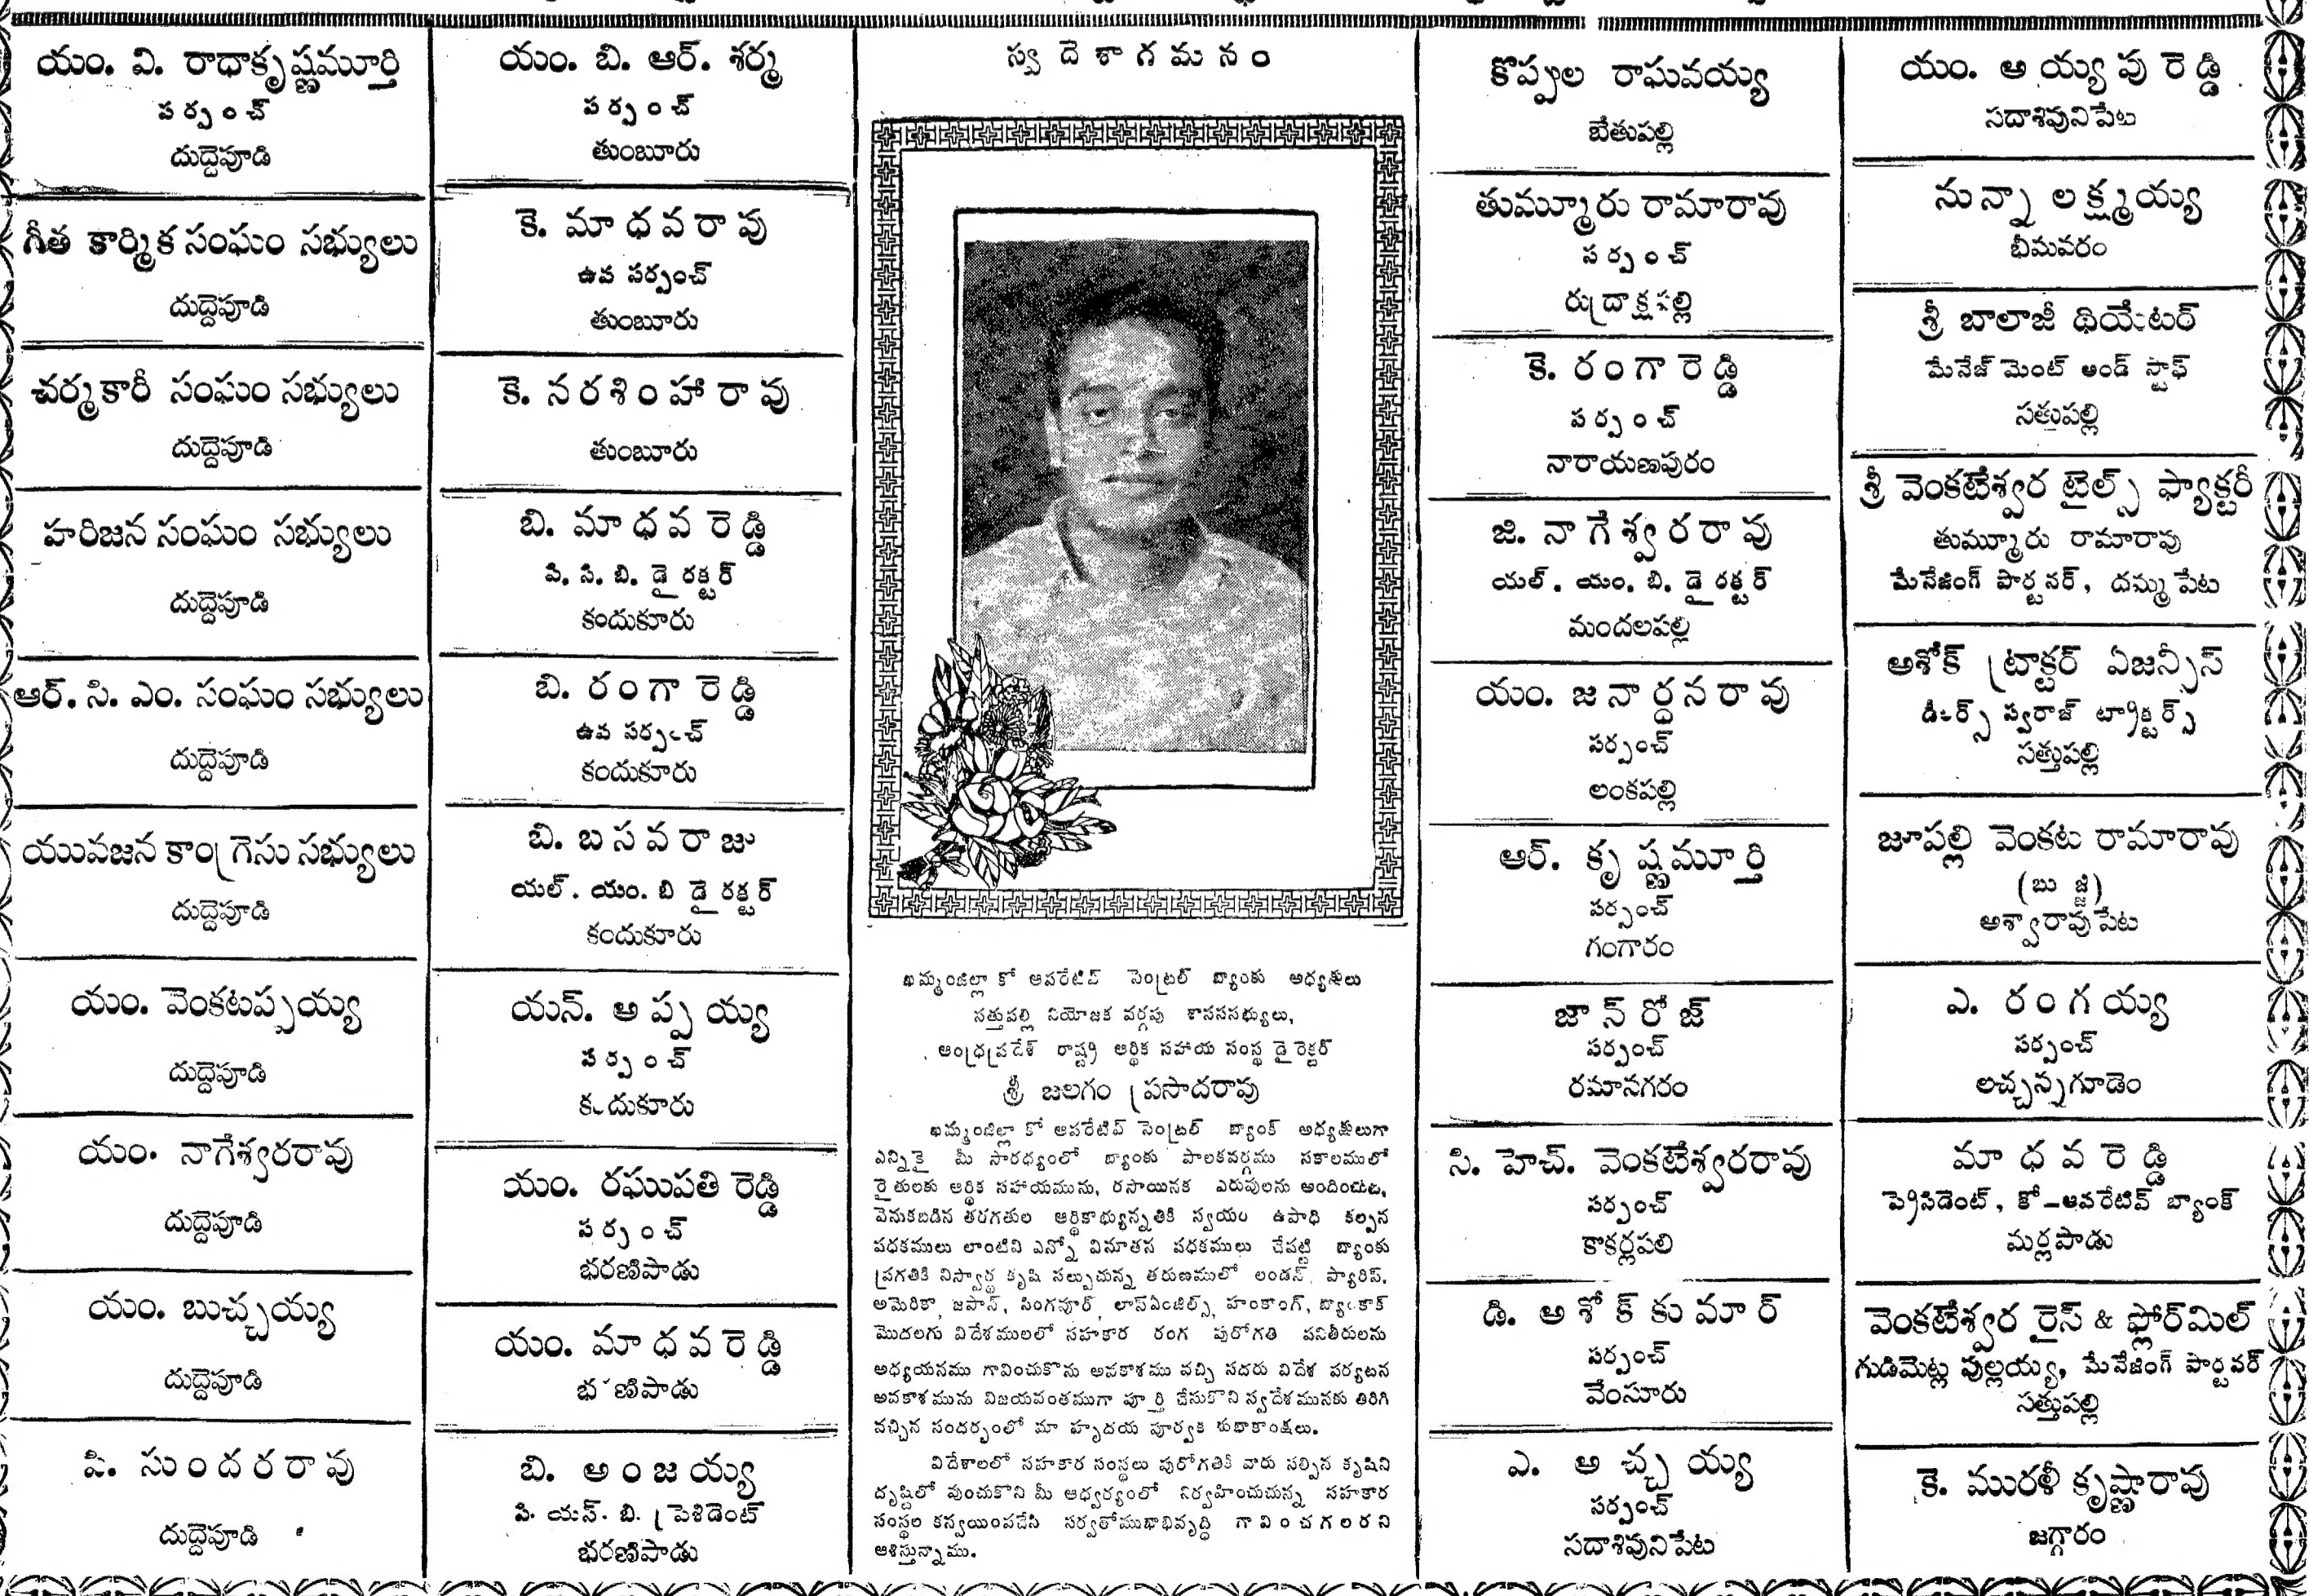 యం. వి. రాధాకృష్ణమూర్తి
సర్పంచ్
దుద్దెపూడి
గీత కార్మిక సంఘం సభ్యులు
దుద్దెపూడి
చర్మకారీ సంఘం సభ్యులు
దుద్దెపూడి
హరిజన సంఘం సభ్యులు
దుద్దెపూడి
ఆర్. సి. ఎం. సంఘం సభ్యులు
దుద్దెపూడి
యువజన కాంగ్రెసు సభ్యులు
దుద్దెపూడి
యం. వెంకటప్పయ్య
దుద్దెపూడి
యం. నాగేశ్వరరావు
దుద్దెపూడి
యం. బుచ్చయ్య
దుద్దెపూడి
పి. సుందరరావు
దుద్దెపూడి
యం. బి. ఆర్. శర్మ
సర్పంచ్
తుంబూరు
కె. మాధవరావు
ఉప సర్పంచ్
తుంబూరు
కె. నరశింహారావు
తుంబూరు
బి. మాధవరెడ్డి
పి. సి. బి. డైరక్టర్
కందుకూరు
బి. రంగారెడ్డి
ఉప సర్పంచ్
కందుకూరు
బి. బసవరాజు
యల్. యం. బి డైరక్టర్
కందుకూరు
యన్. అప్పయ్య
సర్పంచ్
కందుకూరు
యం. రఘుపతి రెడ్డి
సర్పంచ్
భరణిపాడు
యం. మాధవరెడ్డి
భరణిపాడు
బి. అంజయ్య
పి. యన్. బి. ప్రెశిడెంట్
భరణిపాడు
స్వదెశాగమనం
ఖమ్మంజిల్లా కో ఆపరేటివ్ సెంట్రల్ బ్యాంకు అధ్యక్షులు
సత్తుపల్లి నియోజక వర్గపు శాసనసభ్యులు,
ఆంధ్రప్రదేశ్ రాష్ట్ర ఆర్థిక సహాయ సంస్థ డైరెక్టర్
శ్రీ జలగం ప్రసాదరావు
ఖమ్మంజిల్లా కో ఆపరేటివ్ సెంట్రల్ బ్యాంక్ అధ్యక్షులుగా
ఎన్నికై మీ సారధ్యంలో బ్యాంకు పాలకవర్గము సకాలములో
రైతులకు ఆర్థిక సహాయమును, రసాయినక ఎరువులను అందించుట,
వెనుకబడిన తరగతుల ఆర్థికాభ్యున్నతికి స్వయం ఉపాధి కల్పన
పధకములు లాంటివి ఎన్నో వినూతన పధకములు చేపట్టి బ్యాంకు
ప్రగతికి నిస్వార్థ కృషి సల్పుచున్న తరుణములో లండన్, ప్యారిస్,
అమెరికా, జపాన్, సింగపూర్, లాస్ఏంజిల్స్, హంకాంగ్, బ్యాంకాక్
మొదలగు విదేశములలో సహకార రంగ పురోగతి పనితీరులను
అధ్యయనము గావించుకొను అవకాశము వచ్చి సదరు విదేశ పర్యటన
అవకాశమును విజయవంతముగా పూర్తి చేసుకొని స్వదేశమునకు తిరిగి
వచ్చిన సందర్భంలో మా హృదయ పూర్వక శుభాకాంక్షలు.
విదేశాలలో సహకార సంస్థలు పురోగతికి వారు సల్పిన కృషిని
దృష్టిలో వుంచుకొని మీ ఆధ్వర్యంలో నిర్వహించుచున్న సహకార
సంస్థల కన్వయింపచేసి సర్వతోముఖాభివృద్ధి గావించగలరని
ఆశిస్తున్నాము.
కొప్పుల రాఘవయ్య
బేతుపల్లి
తుమ్మూరు రామారావు
సర్పంచ్
రుద్రాక్షపల్లి
కె. రంగారెడ్డి
సర్పంచ్
నారాయణపురం
జి. నాగేశ్వరరావు
యల్. యం. బి. డైరక్టర్
మందలపల్లి
యం. జనార్దనరావు
సర్పంచ్
లంకపల్లి
ఆర్. కృష్ణమూర్తి
సర్పంచ్
గంగారం
జాన్ రోజ్
సర్పంచ్
రమానగరం
సి. హెచ్. వెంకటేశ్వరరావు
సర్పంచ్
కాకర్లపలి
డి. అశోక్ కుమార్
సర్పంచ్
వేంసూరు
ఎ. అచ్చయ్య
సర్పంచ్
సదాశివునిపేట
యం. అయ్యపురెడ్డి
సదాశివునిపేట
నున్నా లక్ష్మయ్య
భీమవరం
శ్రీ బాలాజీ థియేటర్
మేనేజ్ మెంట్ అండ్ స్టాఫ్
సత్తుపల్లి
శ్రీ వెంకటేశ్వర టైల్స్ ఫ్యాక్టరీ
తుమ్మూరు రామారావు
మేనేజింగ్ పార్టనర్, దమ్మపేట
అశోక్ ట్రాక్టర్ ఏజన్సీస్
డీలర్స్ స్వరాజ్ ట్రాక్టర్స్
సత్తుపల్లి
జూపల్లి వెంకట రామారావు
(బుజ్జి)
అశ్వారావుపేట
ఎ. రంగయ్య
సర్పంచ్
లచ్చన్నగూడెం
మాధవరెడ్డి
ప్రెసిడెంట్, కో-ఆపరేటివ్ బ్యాంక్
మర్లపాడు
వెంకటేశ్వర రైస్ & ఫ్లోర్‌మిల్
గుడిమెట్ల పుల్లయ్య, మేనేజింగ్ పార్టనర్
సత్తుపల్లి
కె. మురళీ కృష్ణారావు
జగ్గారం